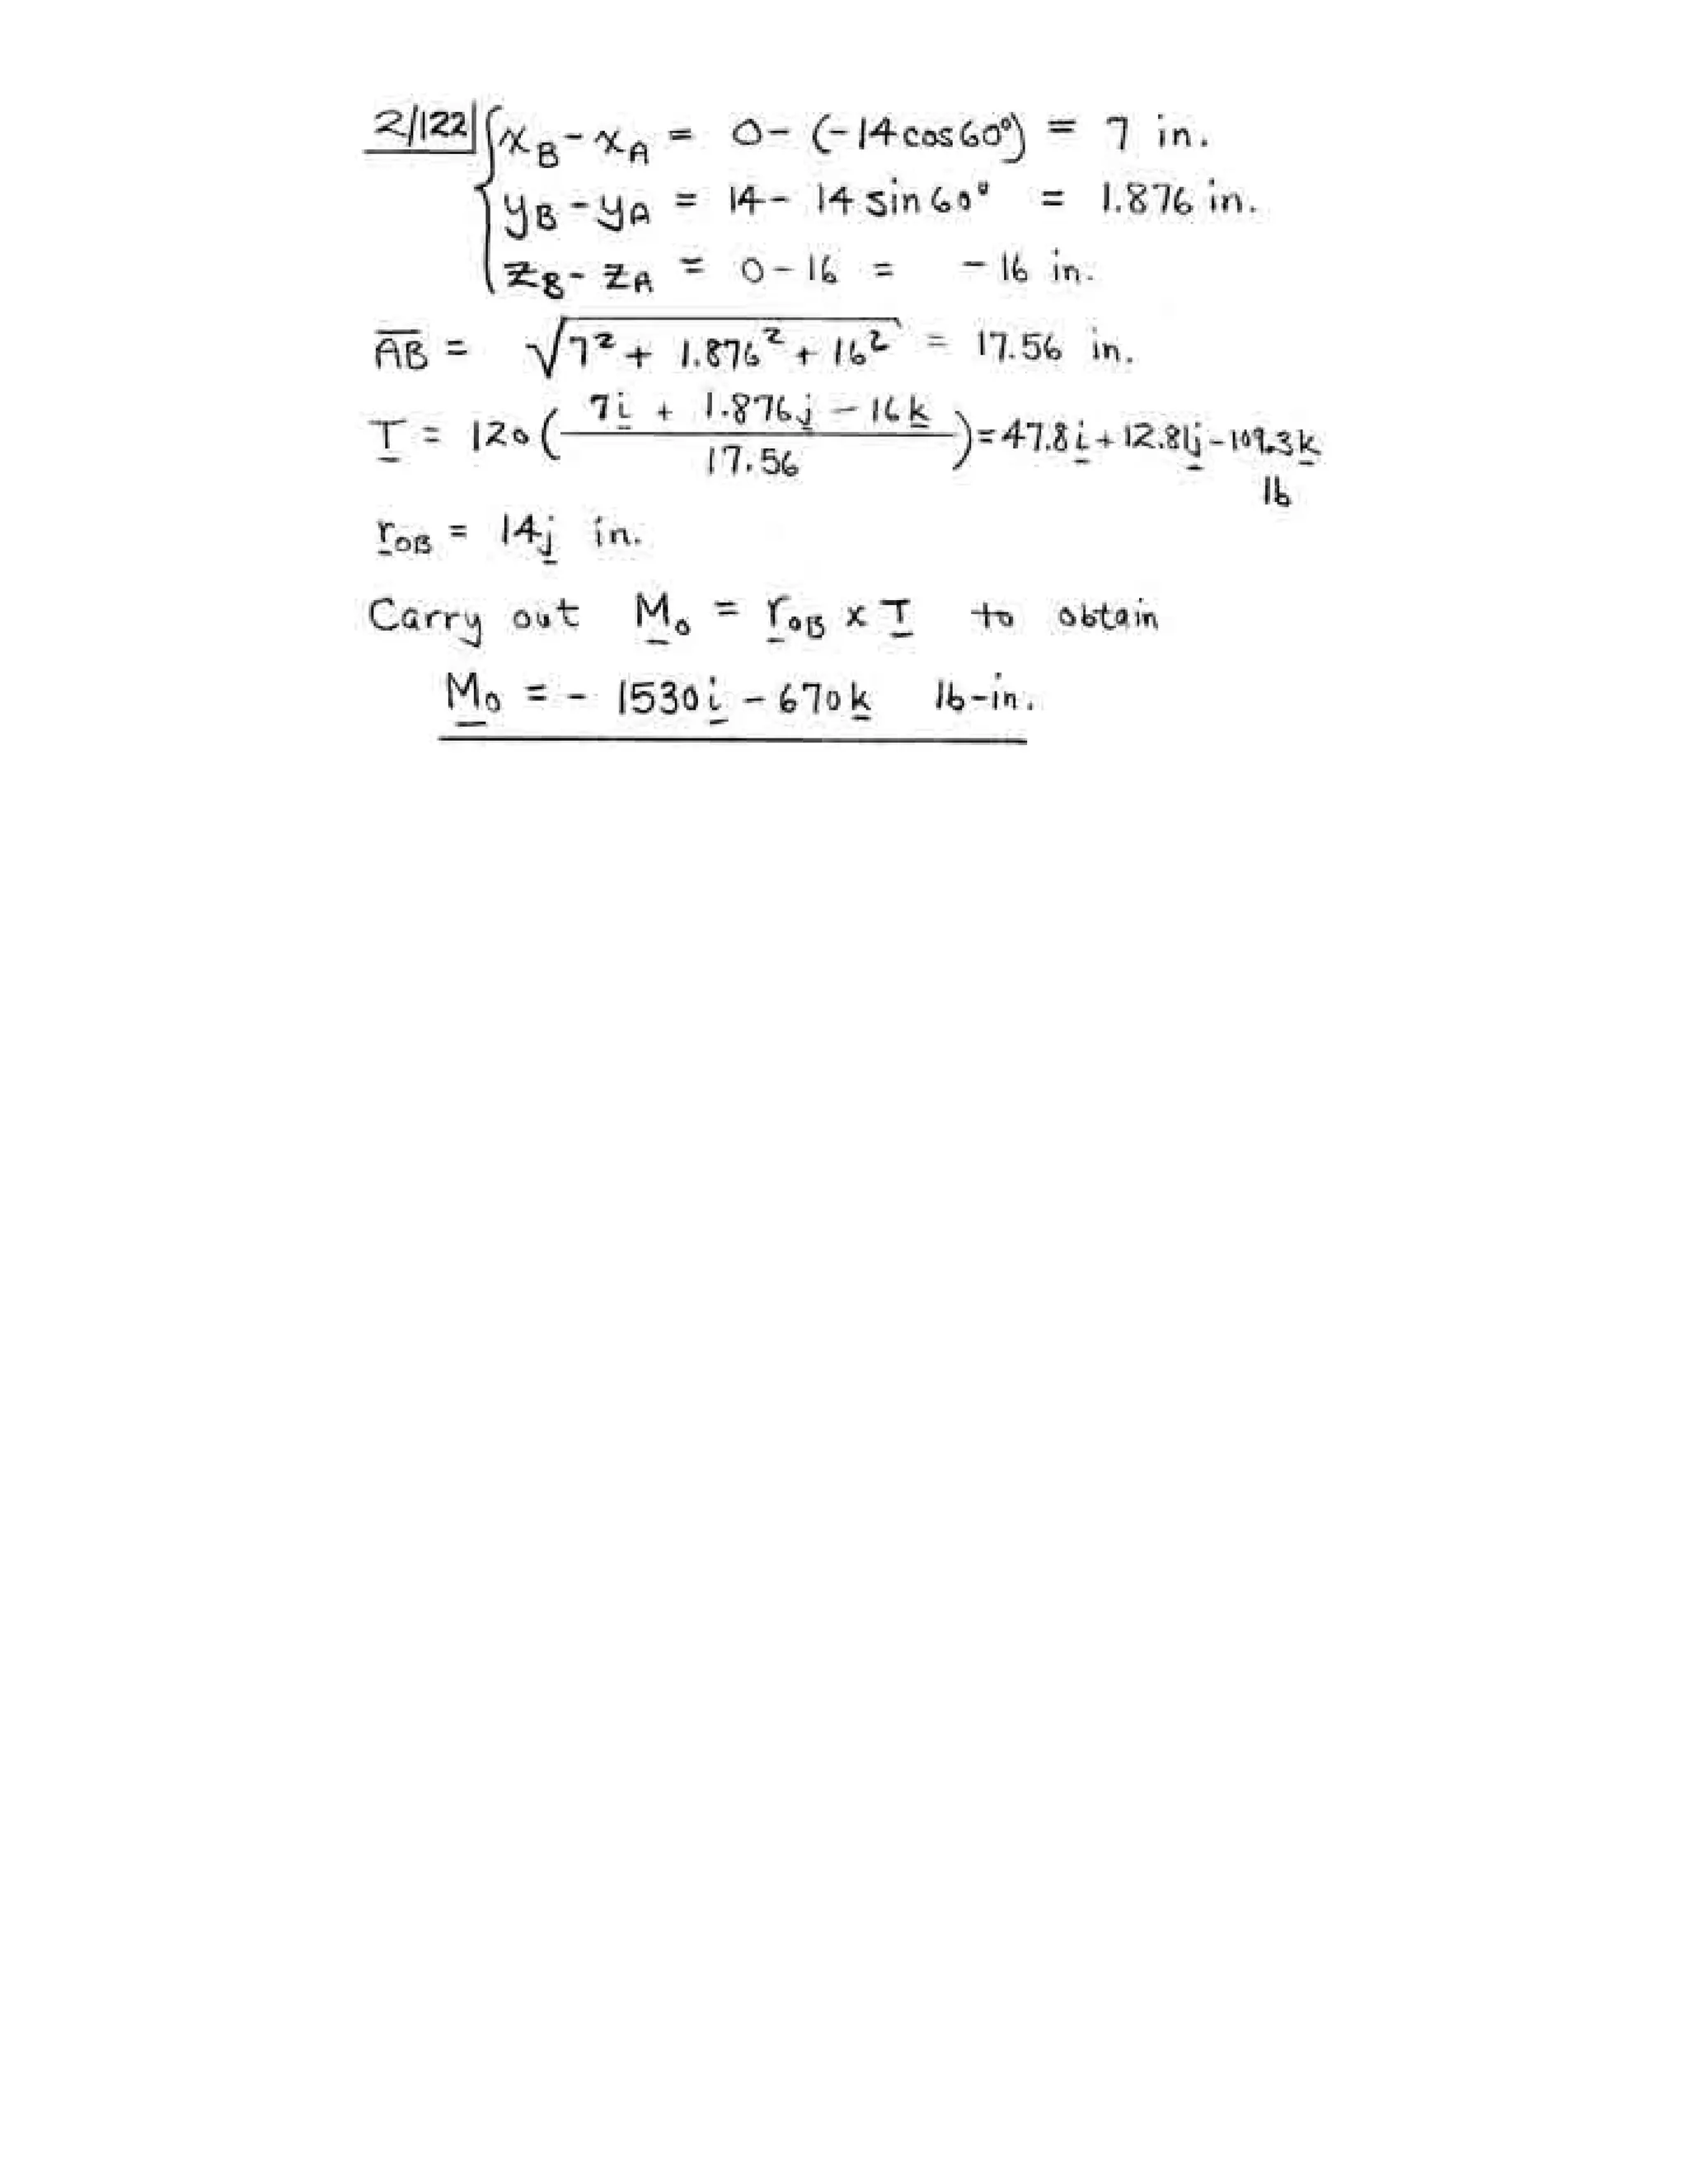 2/122 { x_B - x_A = 0 - (-14 cos 60°) = 7 in.
y_B - y_A = 14 - 14 sin 60° = 1.876 in.
z_B - z_A = 0 - 16 = -16 in.
A̅B̅ = √(7² + 1.876² + 16²) = 17.56 in.
T = 120 ( (7i + 1.876j - 16k) / 17.56 ) = 47.8i + 12.81j - 109.3k
lb
r_OB = 14j in.
Carry out M_o = r_OB x T to obtain
M_o = - 1530i - 670k lb-in.